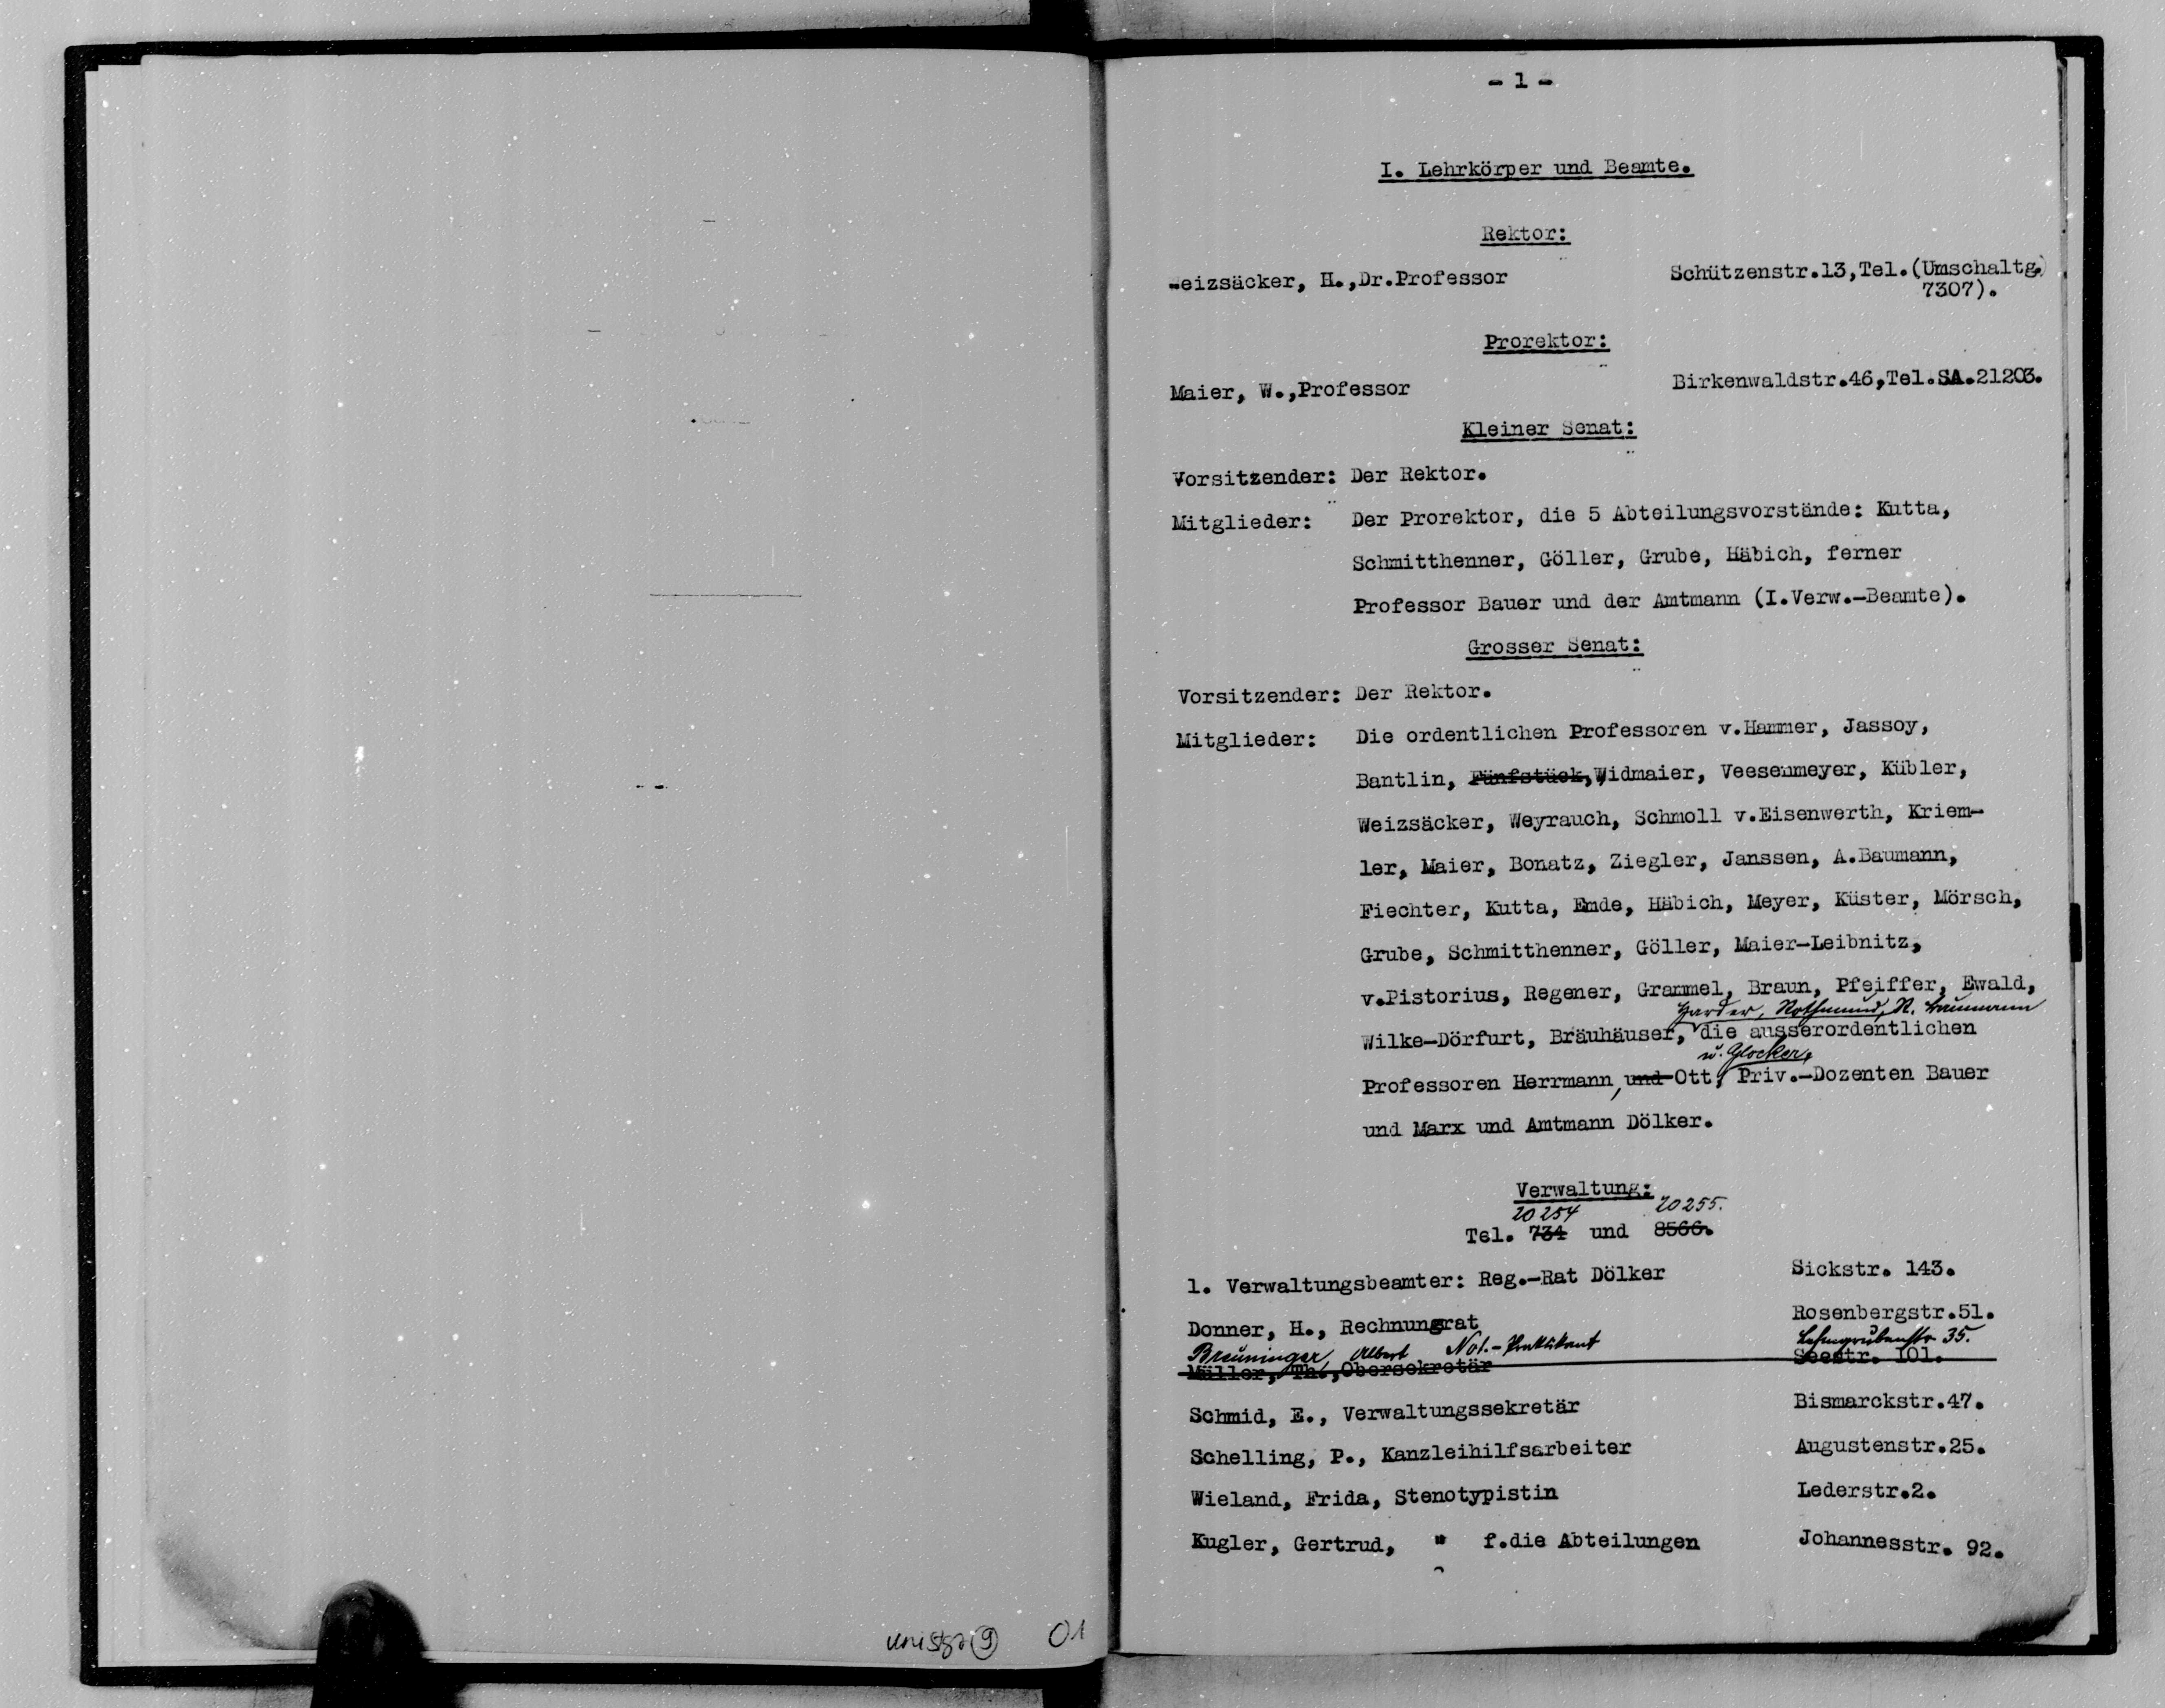 - 1 -
I. Lehrkörper und Beamte.
Rektor:
eizsäcker, H.,Dr.Professor Schützenstr.13,Tel.(Umschaltg.)
7307).
Prorektor:
Maier, W.,Professor Birkenwaldstr.46,Tel.SA.21203.
Kleiner Senat:
Vorsitzender: Der Rektor.
Mitglieder: Der Prorektor, die 5 Abteilungsvorstände: Kutta,
Schmitthenner, Göller, Grube, Häbich, ferner
Professor Bauer und der Amtmann (I.Verw.-Beamte).
Grosser Senat:
Vorsitzender: Der Rektor.
Mitglieder: Die ordentlichen Professoren v.Hammer, Jassoy,
Bantlin, Fünfstück, Widmaier, Veesenmeyer, Kübler,
Weizsäcker, Weyrauch, Schmoll v.Eisenwerth, Kriem-
ler, Maier, Bonatz, Ziegler, Janssen, A.Baumann,
Fiechter, Kutta, Emde, Häbich, Meyer, Küster, Mörsch,
Grube, Schmitthenner, Göller, Maier-Leibnitz,
v.Pistorius, Regener, Grammel, Braun, Pfeiffer, Ewald,
Harder, Rothmund, R. Baumann
Wilke-Dörfurt, Bräuhäuser, die ausserordentlichen
u. Glocker,
Professoren Herrmann, und Ott, Priv.-Dozenten Bauer
und Marx und Amtmann Dölker.
Verwaltung:
20254 20255.
Tel. 734 und 8566.
1. Verwaltungsbeamter: Reg.-Rat Dölker Sickstr. 143.
Donner, H., Rechnungrat Rosenbergstr.51.
Breuninger, Albert Not.-Praktikant Lehmgrubenstr. 35.
Müller, Th.,Obersekretär Seestr. 101.
Schmid, E., Verwaltungssekretär Bismarckstr.47.
Schelling, P., Kanzleihilfsarbeiter Augustenstr.25.
Wieland, Frida, Stenotypistin Lederstr.2.
Kugler, Gertrud, " f.die Abteilungen Johannesstr. 92.
9 01